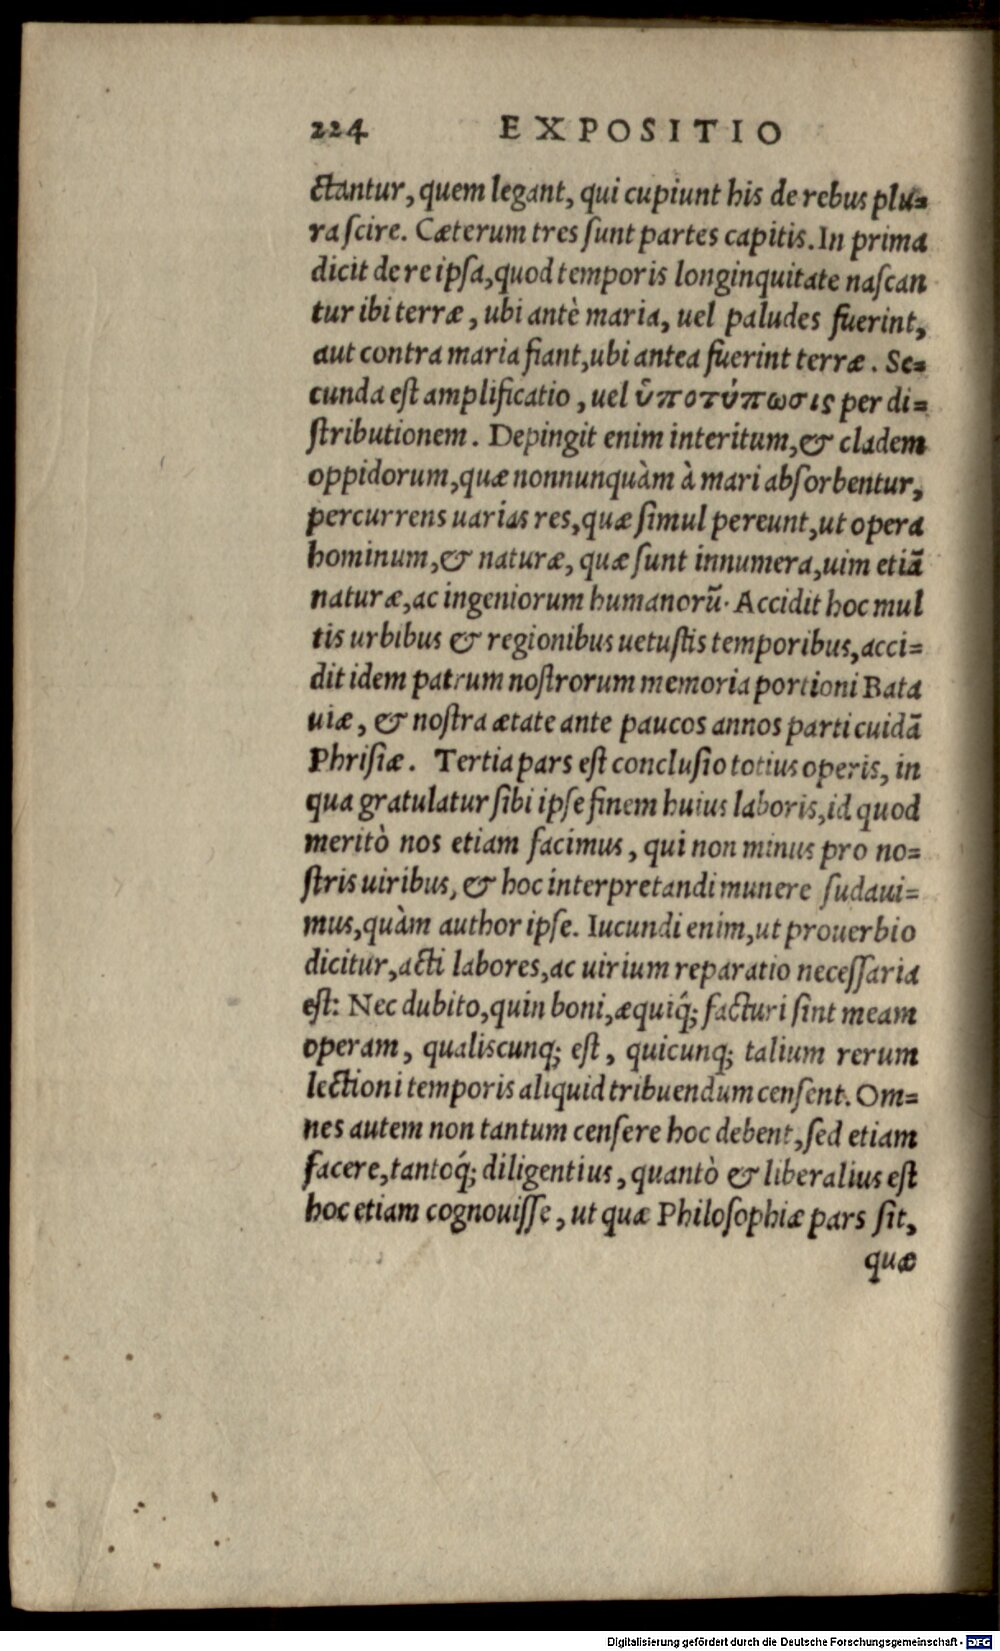 224 EXPOSITIO
ctantur, quem legant, qui cupiunt his de rebus plu=
ra scire. Cæterum tres sunt partes capitis. In prima
dicit de re ipsa, quod temporis longinquitate nascan
tur ibi terræ, ubi antè maria, uel paludes fuerint,
aut contra maria fiant, ubi antea fuerint terræ. Se=
cunda est amplificatio, uel ὑποτύπωσις per di=
stributionem. Depingit enim interitum, & cladem
oppidorum, quæ nonnunquàm à mari absorbentur,
percurrens uarias res, quæ simul pereunt, ut opera
hominum, & naturæ, quæ sunt innumera, uim etiã
naturæ, ac ingeniorum humanorũ. Accidit hoc mul
tis urbibus & regionibus uetustis temporibus, acci=
dit idem patrum nostrorum memoria portioni Bata
uiæ, & nostra ætate ante paucos annos parti cuidã
Phrisiæ. Tertia pars est conclusio totius operis, in
qua gratulatur sibi ipse finem huius laboris, id quod
meritò nos etiam facimus, qui non minus pro no=
stris uiribus, & hoc interpretandi munere sudaui=
mus, quàm author ipse. Iucundi enim, ut prouerbio
dicitur, acti labores, ac uirium reparatio necessaria
est: Nec dubito, quin boni, æquiq́; facturi sint meam
operam, qualiscunq; est, quicunq; talium rerum
lectioni temporis aliquid tribuendum censent. Om=
nes autem non tantum censere hoc debent, sed etiam
facere, tantoq́; diligentius, quantò & liberalius est
hoc etiam cognouisse, ut quæ Philosophiæ pars sit,
quæ
Digitalisierung gefördert durch die Deutsche Forschungsgemeinschaft - DFG